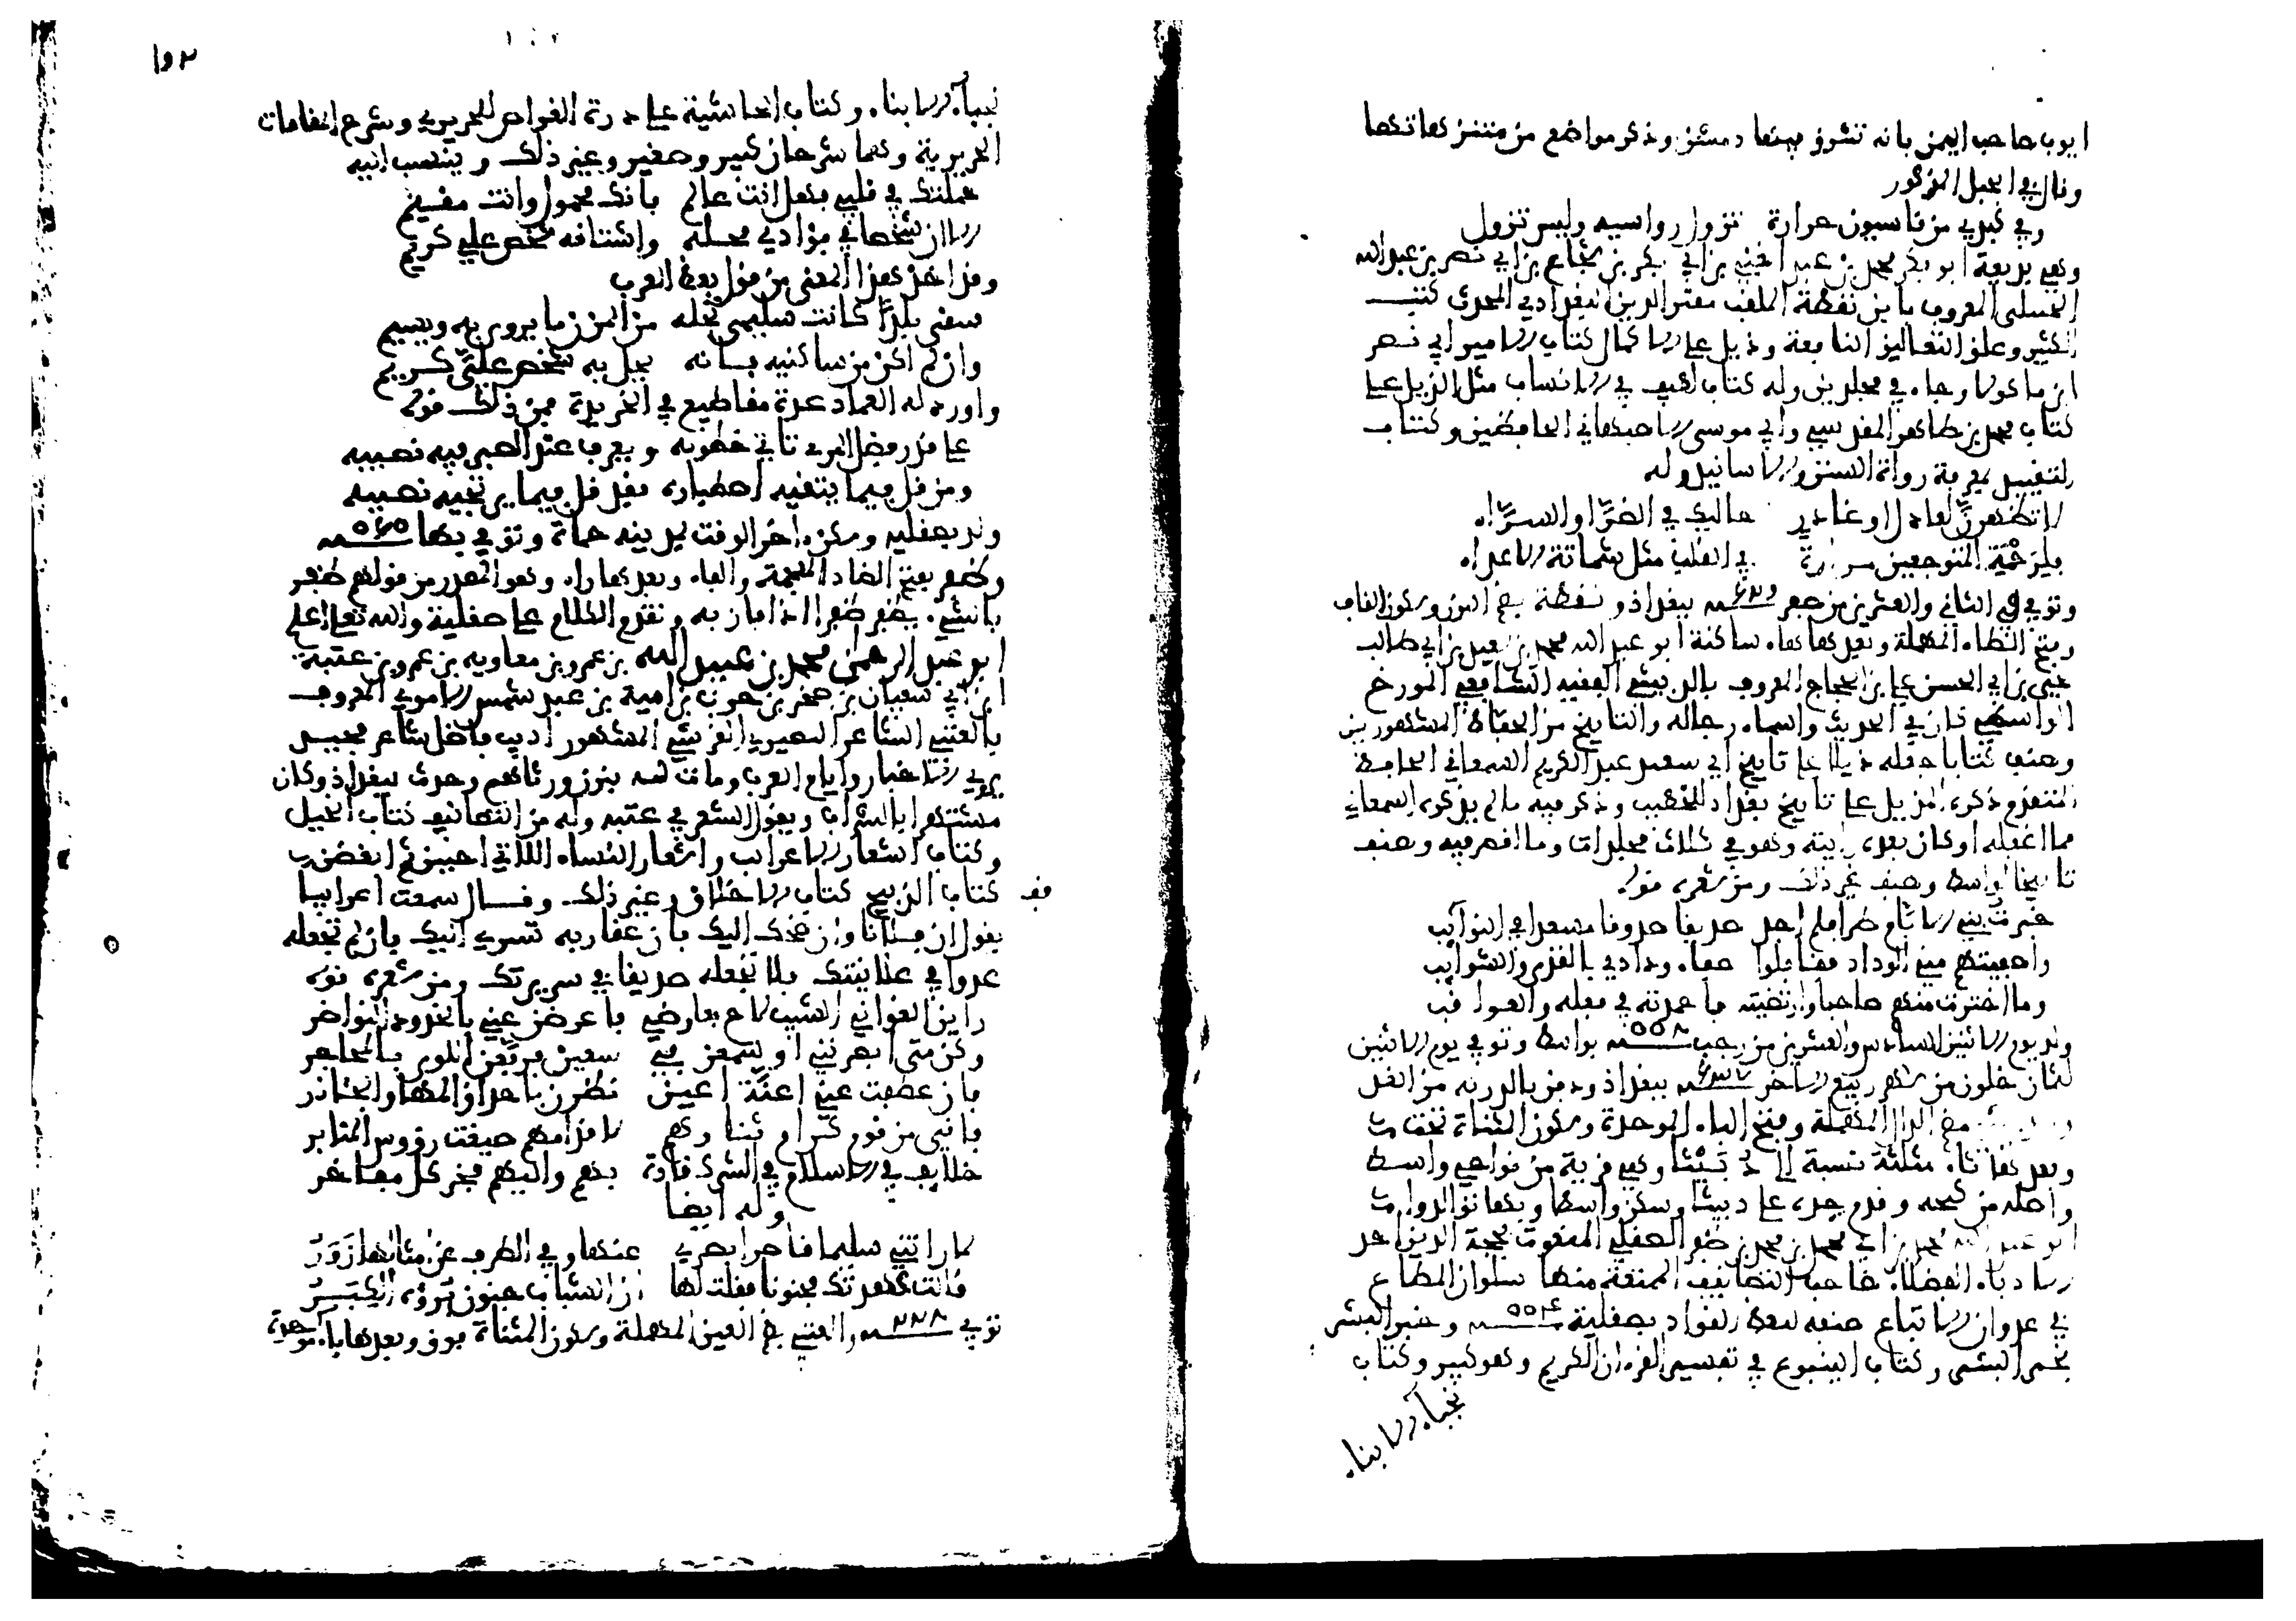 ايوب صاحب اليمن بانه تشوق فيها دمشق وذكر مواضع من متنزهاتها
وقال في الجبل المذكور
وفي كبدي من قاسيون حرارة تزول رواسيه وليس تزول
وهي بديعة ابو بكر محمد بن عبد الغني بن ابي بكر بن شجاع بن ابي نصر بن عبد الله
الحنبلي المعروف بابن نقطة الملقب معين الدين البغدادي المحدث كتب
الكثير وعلق التعاليق النافعة وذيل على الاكمال كتاب الامير ابي نصر
ابن ماكولا وجاء في مجلدين وله كتاب لطيف في الانساب مثل الذيل على
كتاب محمد بن طاهر المقدسي وابي موسى الاصبهاني الحافظين وكتاب
التقييد لمعرفة رواة السنن والمسانيد وله
لا تظهرن لعاذل او عاذر حاليك في الضراء والسراء
فلرحمة المتوجعين مرارة في القلب مثل شماتة الاعداء
وتوفي في الثاني والعشرين من صفر سنة ٦٢٩ ببغداذ ونقطة بضم النون وسكون القاف
وفتح الطاء المهملة وبعدها هاء ساكنة ابو عبد الله محمد بن سعيد بن ابي طالب
يحيى بن ابي الحسن علي بن الحجاج المعروف بالدبيثي الفقيه الشافعي المورخ
الواسطي كان في الحديث واسماء رجاله والتاريخ من الحفاظ المشهورين
وصنف كتابا جعله ذيلا على تاريخ ابي سعد عبد الكريم السمعاني الحافظ
المتقدم ذكره المذيل على تاريخ بغداد للخطيب وذكر فيه ما لم يذكره السمعاني
مما اغفله او كان بعده رايته وهو في ثلاث مجلدات وما اقصر فيه وصنف
تاريخا لواسط وصنف غير ذلك ومن شعره قوله
خبرت بني الايام طرا فلم اجد صديقا صدوقا مسعدا في النوايب
واصفيتهم مني الوداد فقابلوا صفاء ودادي بالقذى والشوايب
وما اخترت منهم صاحبا وارتضيته فاحمدته في فعله والعواقب
ولد يوم الاثنين السادس والعشرين من رجب سنة ٥٥٨ بواسط وتوفي يوم الاثنين
لثمان خلون من شهر ربيع الاخر سنة ٦٣٧ ببغداذ ودفن بالوردية من الغد
بضم الدال المهملة وفتح الباء الموحدة وسكون المثناة تحت
وبعدها ثاء مثلثة نسبة الى دُبَيْثا وهي قرية من نواحي واسط
واصله من كنجه وقدم جده على دبيثا وسكن واسط وبها توالدوا
ابو عبد الله محمد بن ابي محمد بن محمد بن ظفر الصقلي المنعوت بحجة الدين احد
الادباء الفضلاء صاحب التصانيف الممتعة منها سلوان المطاع
في عدوان الاتباع صنفه لبعض القواد بصقلية سنة ٥٥٤ وخير البشر
بخير البشر وكتاب الينبوع في تفسير القرءان الكريم وهو كبير وكتاب
نجباء الابناء
نجباء الابناء وكتاب الحاشية على درة الغواص للحريري وشرح المقامات
الحريرية وهما شرحان كبير وصغير وغير ذلك وينسب اليه
حملتك في قلبي فهل انت عالم بانك محمول وانت مقيم
الا ان شخصا في فؤادي محله واشتاقه شخص علي كريم
وقد اخذ هذا المعنى من قول بعض العرب
سقى بلدا كانت سليمى تحله من المزن ما يروى به ويسيم
وان لم اكن من ساكنيه فانه يحل به شخص علي كريم
واورد له العماد عدة مقاطيع في الخريدة فمن ذلك قوله
على قدر فضل المرء تاتي خطوبه ويعرف عند الصبر فيه نصيبه
ومن قل فيما يتقيه اصطباره فقد قل فيما يرتجيه نصيبه
ولد بصقلية وسكن اخر الوقت بمدينة حماة وتوفي بها سنة ٥٦٥
وظفر بفتح الضاد المعجمة والفاء وبعدها راء وهو المصدر من قولهم ظفر
بالشيء يظفر ظفرا اذا فاز به وتقدم الكلام على صقلية والله تعالى اعلم
ابو عبد الرحمن محمد بن عبيد الله بن عمرو بن معاوية بن عمرو بن عتبة
ابن ابي سفيان بن صخر بن حرب بن امية بن عبد شمس الاموي المعروف
بالعتبي الشاعر البصري القرشي المشهور اديب فاضل شاعر مجيد
يروي الاخبار وايام العرب ومات له بنون ورثاهم وحدث ببغداذ وكان
مشتهرا بالشراب ويقول الشعر في عتبه وله من التصانيف كتاب الخيل
وكتاب اشعار الاعراب واشعار النساء اللاتي احببن ثم ابغضن
وكتاب الذبيح كتاب الاخلاق وغير ذلك وقال سمعت اعرابيا
يقول ان فلانا وان ضحك اليك فان عقاربه تسري اليك فان لم تجعله
عدوا في علانيتك فلا تجعله صديقا في سريرتك ومن شعره قوله
راين الغواني الشيب لاح بعارضي فاعرضن عني بالخدود النواضر
وكن متى ابصرنني او سمعن بي سعين فرقعن اللوى بالمحاجر
فان عطفت عني اعنة اعين نظرن باحداق المها والجئاذر
فاني من قوم كرام ثناؤهم لاقدامهم صيغت رؤوس المنابر
خلايف في الاسلام في الشرك قادة بهم واليهم فخر كل مفاخر
وله ايضا
لما راتني سليمى قاصرا بصري عنها وفي الطرف عن امثالها زَوَرُ
قالت عهدتك مجنونا فقلت لها ان الشباب جنون برؤه الكِبَرُ
توفي سنة ٢٢٨ والعتبي بضم العين المهملة وسكون المثناة فوق وبعدها باء موحدة